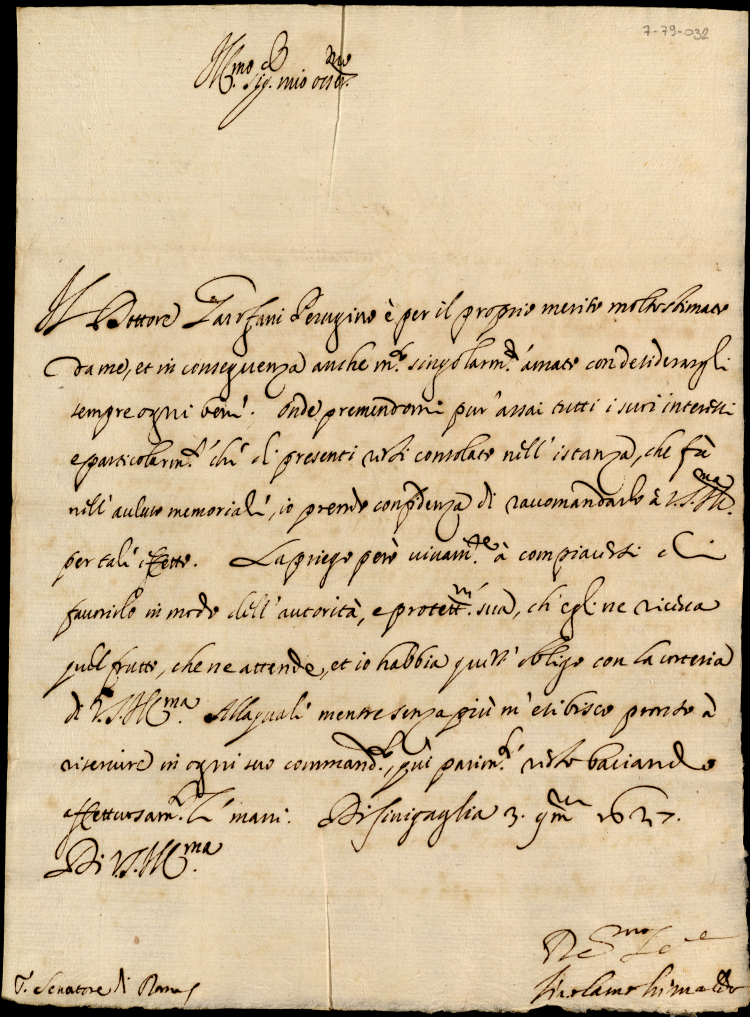 7-79-032
Ill.mo Sig. mio oss.mo
Il Dottore Perugino è per il proprio merito molto stimato
da me, et in conseguenza anche m.to singolarm.te amato con desiderargli
sempre ogni bene. Onde premendomi pur' assai tutti i suoi interessi
e particolarm.te ch'ei di presente resti consolato nell' istanza, che fà
nell' memoriale, io prendo confidenza di raccomandarlo à V.S. Ill.ma
per tale effetto. La priego però vivam.te à compiacersi di
favorirlo in modo dell' autorità, e protett.ne sua, ch'egli ne riceva
quel frutto, che ne attende, et io habbia quest' obligo con la cortesia
di V.S. Ill.ma Alla quale mentre senza più m' esibisco pronto à
riservire in ogni suo command.to, quì parim.te resto baciando
affettuosam.te le mani. Di Sinigaglia 3. 9mre 1627.
Di V.S. Ill.ma
S. Senatore di Roma